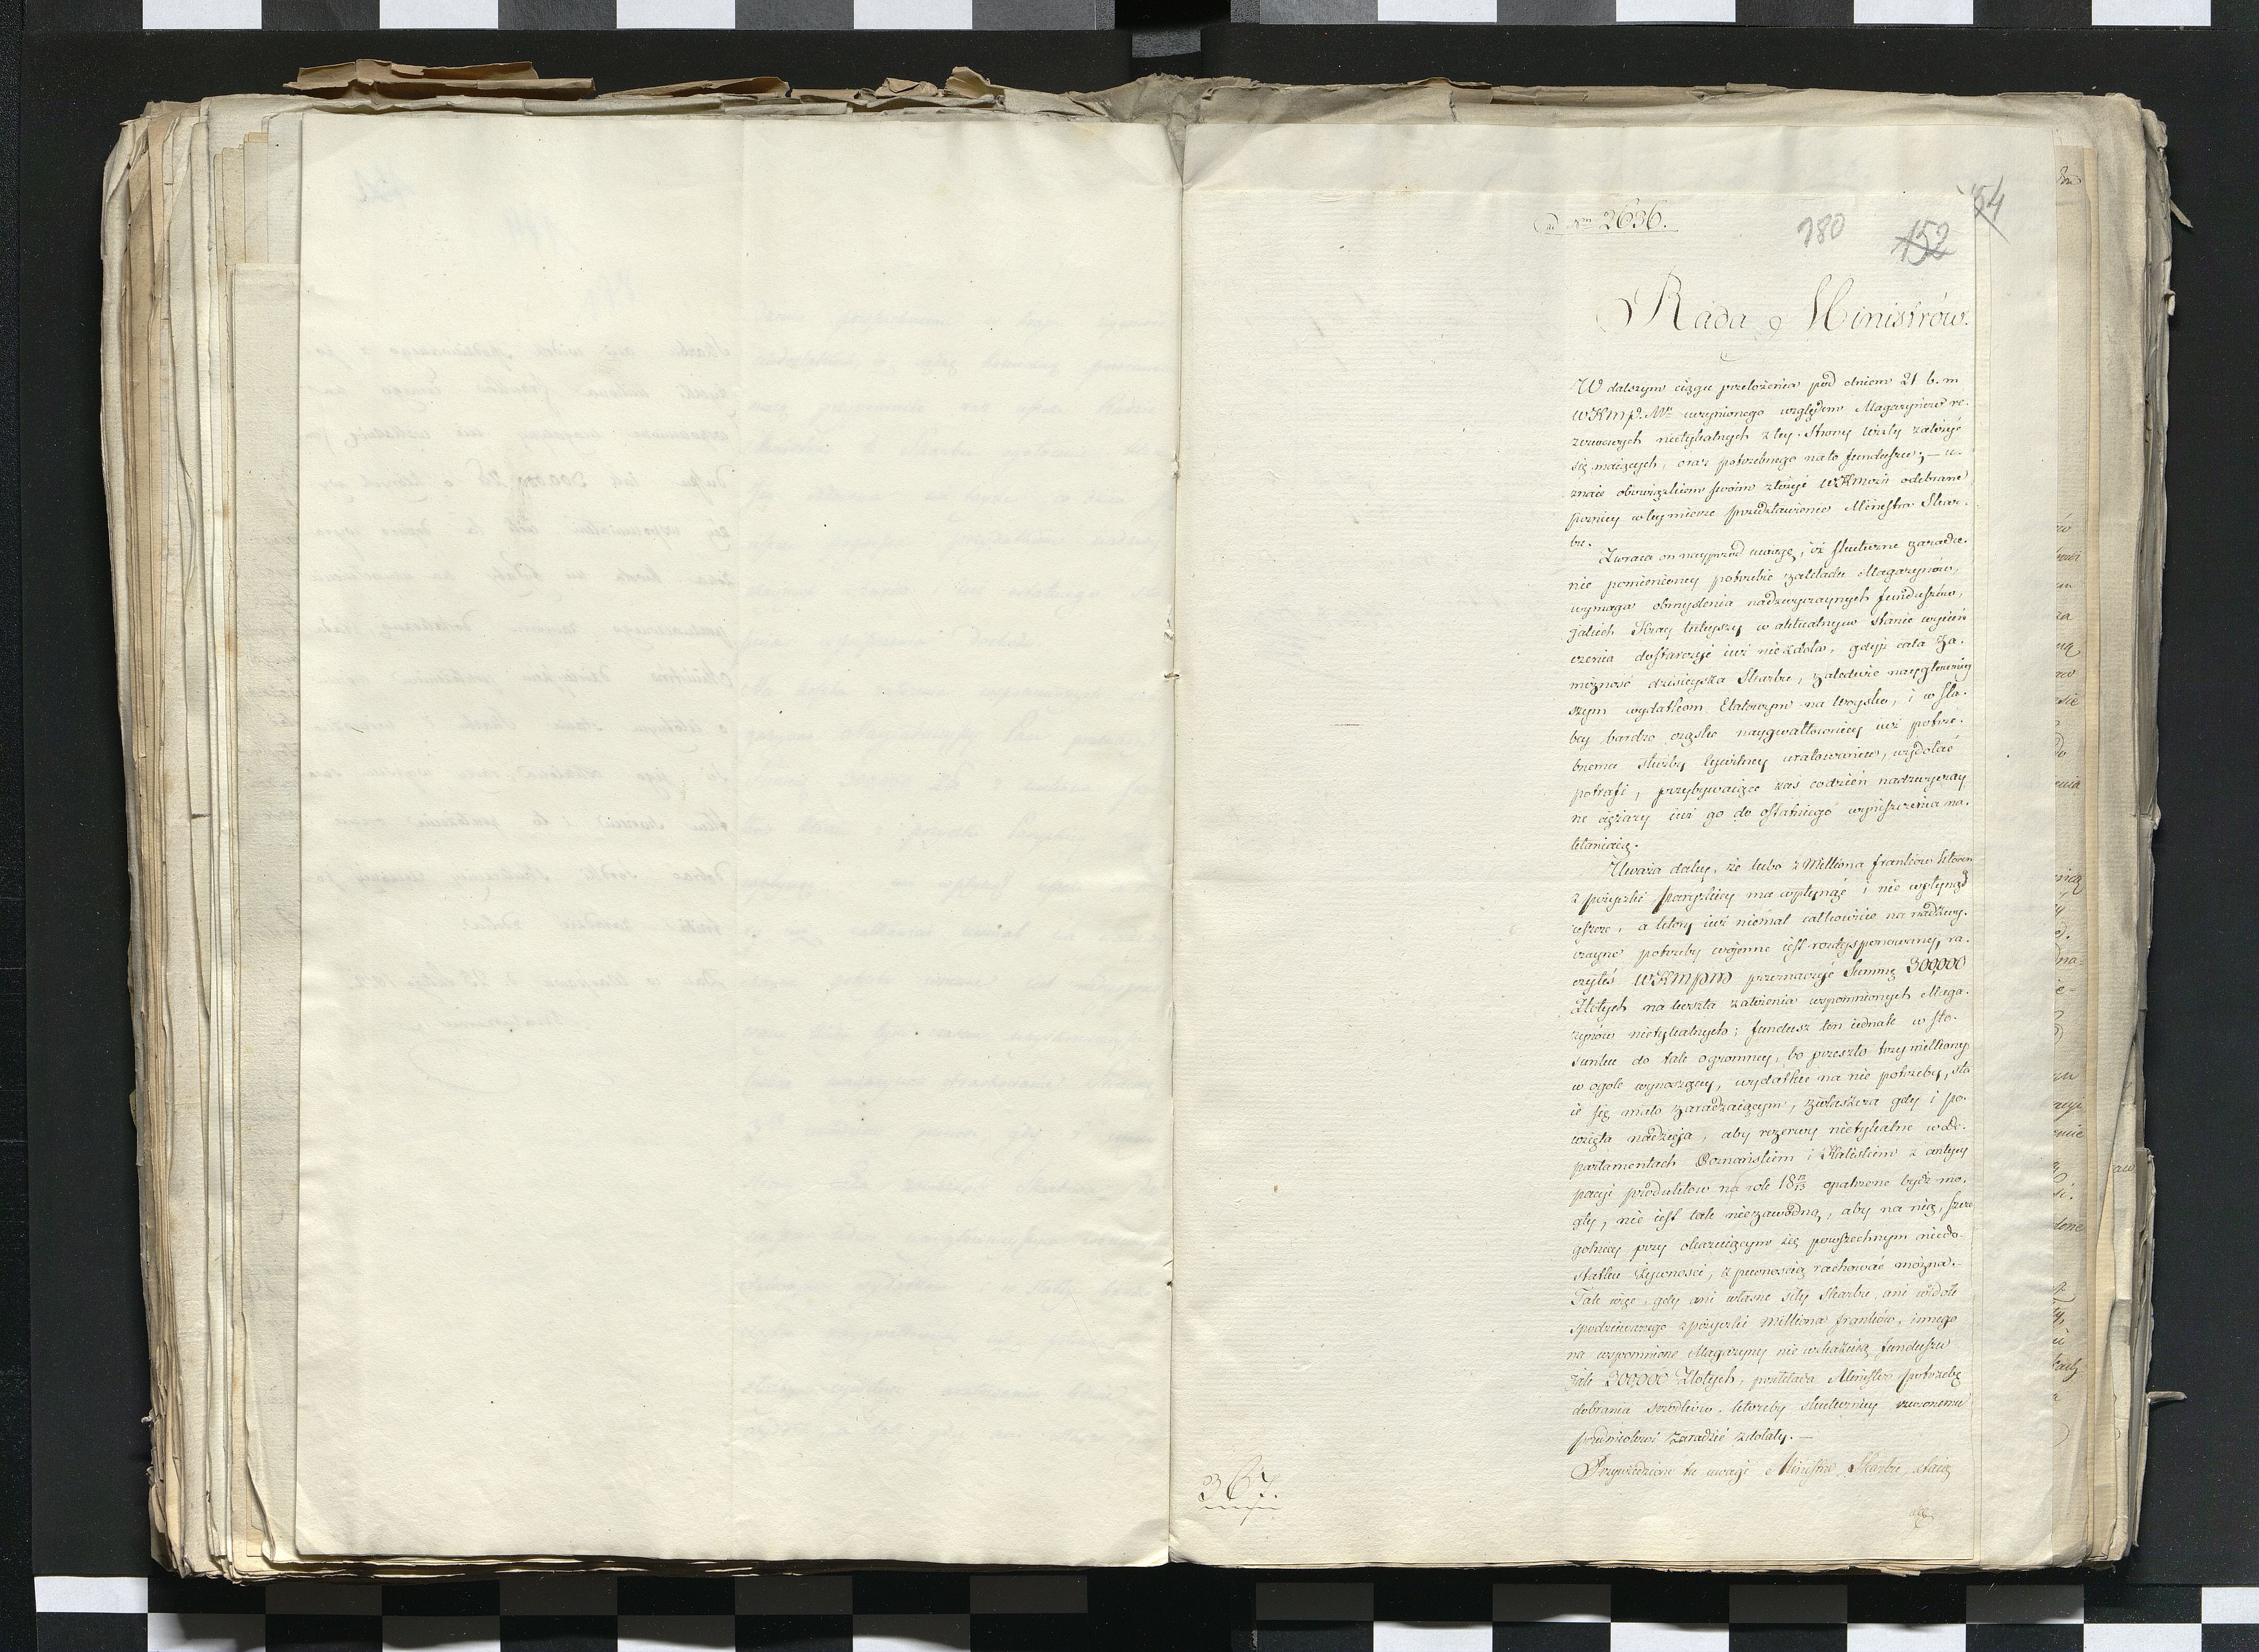 ad Nrm 2636.
180
152
54
Rada Ministrów.
W dalszym ciągu przełożenia pod dniem 21 b. m
WKmp. Mci uczynionego względem Magazynów re-
zerwowych nietykalnych z tey Strony Wisły założyć
się maiących, oraz potrzebnego na to funduszu; – u-
znaie obowiązkiem swoim złożyć WKMości odebrane
pozniey w tey mierze przedstawienie Ministra Skar-
bu.
Zwraca on nayprzód uwagę, iż skuteczne zaradze-
nie pomienioney potrzebie zakładu Magazynów,
wymaga obmyślenia nadzwyczaynych funduszów,
jakich Kray tuteyszy w aktualnym Stanie wycień-
czenia dostarczyć iuż nie zdoła, gdyż cała Za-
możność dzisieysza Skarbu, zaledwie naygłówniey
szym wydatkom Etatowym na Woysko, i w sła-
bey bardzo cząstce naygwałtowniey iuż potrze-
bnemu służby Cywilney uratowaniu, wydołać
potrafi, przybywaiące zaś codzień nadzwyczay
ne ciężary iuż go do ostatniego wyniszczenia na-
kłaniaią.
Uważa daley, że lubo z Milliona franków który
z pożyczki Paryzkiey ma wpłynąć i nie wpłynął
ieszcze, a który iuż niemal całkowicie na nadzwy-
czayne potrzeby woienne iest rozdysponowany, ra-
czyłeś WKmpm przeznaczyć Summę 300,000
Złotych na koszta założenia wspomnionych Maga-
zynów nietykalnych; fundusz ten iednak w sto-
sunku do tak ogromney, bo przeszło trzy milliony
w ogole wynoszącey, wydatku na nie potrzeby, sta
ie się mało zaradzaiącym, zwłaszcza gdy i po-
wzięta nadzieja, aby rezerwy nietykalne w de-
partamentach Poznańskim i Kaliskim z antycy
pacyi produktow na rok 18 12/13 opatrzone bydź mo-
gły, nie iest tak niezawodną, aby na nią, szcze
golniey przy okazuiącym się powszechnym niedo-
statku Żywności, z pewnością rachować można.–
Tak więc, gdy ani własne siły Skarbu, ani widok
spodziewanego z pożyczki Milliona franków, innego
na wspomnione Magazyny nie wskazuią funduszu
jak 300,000 Złotych, przekłada Minister potrzebę
dobrania srodków, któreby skuteczniey rzeczonemu
przedmiotowi zaradzić zdołały.–
Przywiedzione tu uwagi Ministra Skarbu, staią
367.